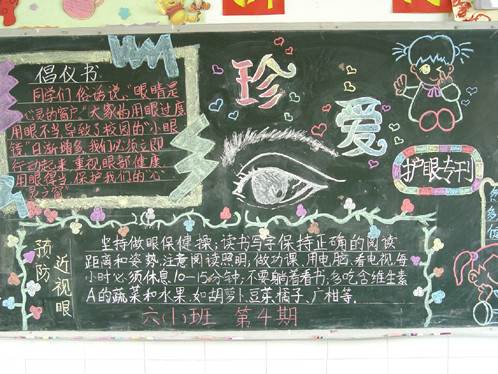 倡仪书
同学们 俗话说:"眼睛是
心灵的窗户."大家的用眼过度
用眼不当导致了校园的"小眼
镜"日渐增多,我们必须立即
行动起来 重视眼部健康
用眼得当 保护我们的"心
灵之窗"
珍爱
护眼专刊
预防近视眼
坚持做眼保健操;读书写字保持正确的阅读
距离和姿势.注意阅读照明,做功课.用电脑.看电视,每
小时必须休息10-15分钟,不要躺着看书;多吃含维生素
A的蔬菜和水果.如胡萝卜.豆芽.橘子.广柑等.
六(1)班 第4期